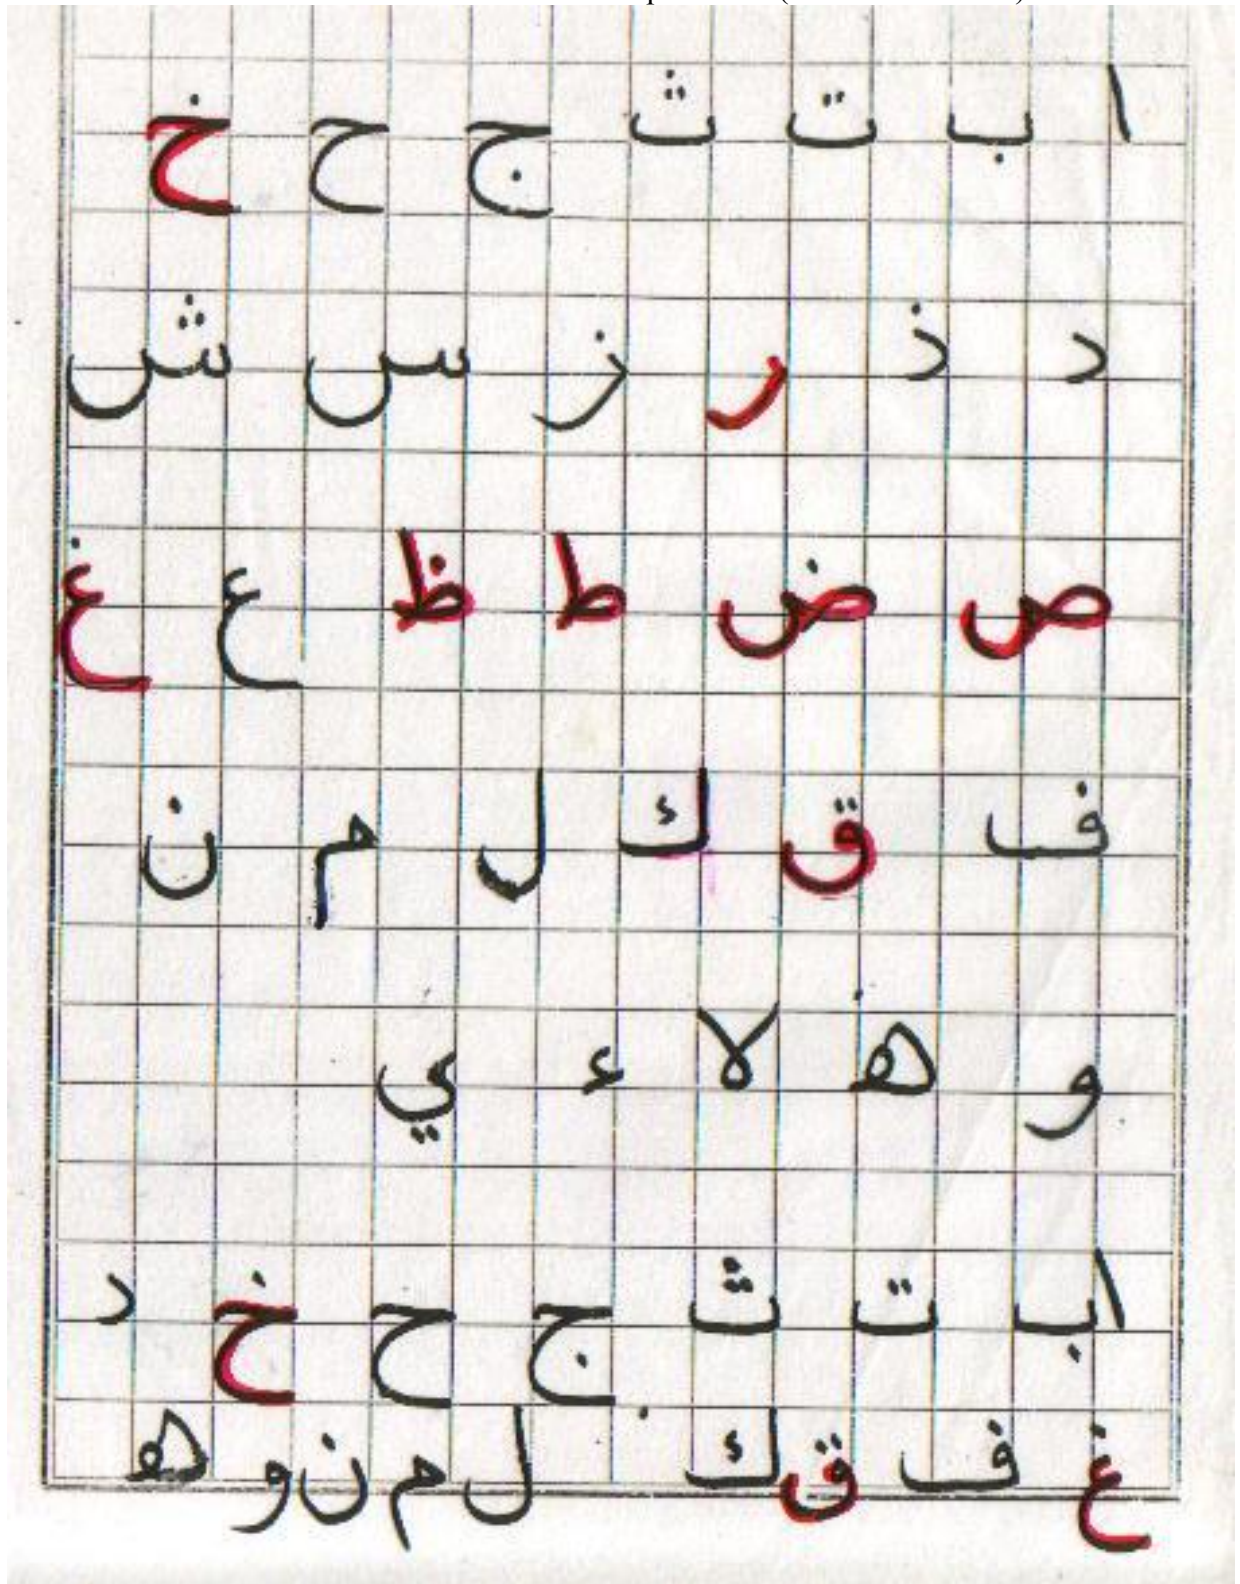 ا ب ت ث ج ح خ
د ذ ر ز س ش
ص ض ط ظ ع غ
ف ق ك ل م ن
و ه لا ء ي
ا ب ت ث ج ح خ د
غ ف ق ك ل م ن و ه